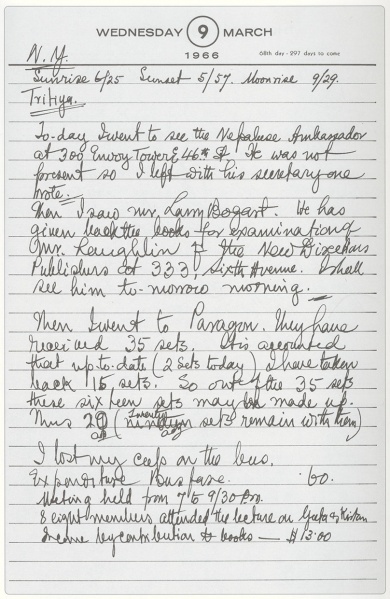 WEDNESDAY 9 MARCH
1966
68th day - 297 days to come
N.Y.
Sunrise 6/25 Sunset 5/57. Moonrise 9/29.
Tritiya.
To-day I went to see the Nepalese Ambassador
at 300 Envoy Tower E 46th St. He was not
present so I left with his secretary one
note.
Then I saw Mr. Larry Bogart. He has
given back the books for examination of
Mr. Laughlin of the New Directions
Publishers at 333, Sixth Avenue. I shall
see him to-morrow morning.
Then I went to Paragon. They have
received 35 sets. It is accounted
that up-to-date (2 sets today) I have taken
back 16 sets. So out of the 35 sets
these sixteen sets may be made up.
Thus (Twenty sets remain with them)
I lost my cap on the bus.
Expenditure Bus fare. '60.
Meeting held from 7 to 9/30 P.m.
8 eight members attended the lecture on Geeta &
Income by contribution to books — $13.00